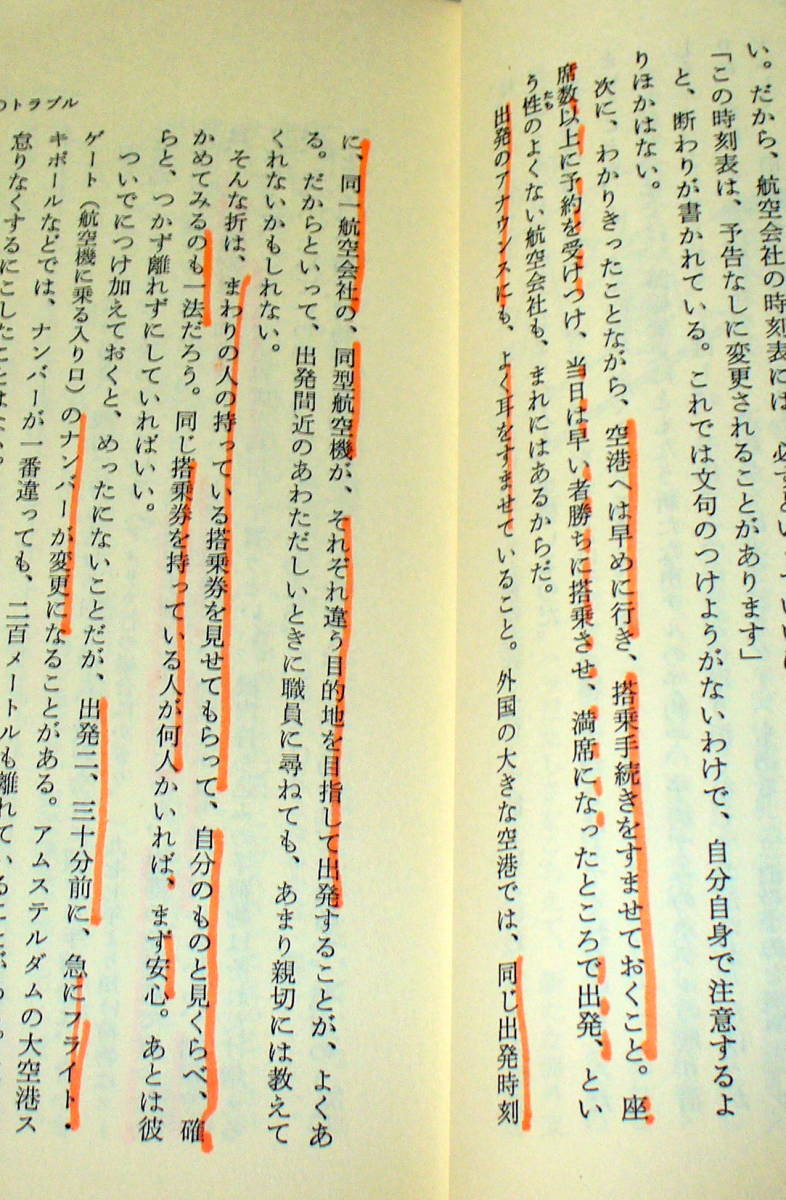 い。だから、航空会社の時刻表には
「この時刻表は、予告なしに変更されることがあります」
と、断わりが書かれている。これでは文句のつけようがないわけで、自分自身で注意するよ
りほかはない。
次に、わかりきったことながら、空港へは早めに行き、搭乗手続きをすませておくこと。座
席数以上に予約を受けつけ、当日は早い者勝ちに搭乗させ、満席になったところで出発、とい
う性のよくない航空会社も、まれにはあるからだ。
たち
出発のアナウンスにも、よく耳をすませていること。外国の大きな空港では、同じ出発時刻
のトラブル
に、同一航空会社の、同型航空機が、それぞれ違う目的地を目指して出発することが、よくあ
る。だからといって、出発間近のあわただしいときに職員に尋ねても、あまり親切には教えて
くれないかもしれない。
そんな折は、まわりの人の持っている搭乗券を見せてもらって、自分のものと見くらべ、確
かめてみるのも一法だろう。同じ搭乗券を持っている人が何人かいれば、まず安心。あとは彼
らと、つかず離れずにしていればいい。
ついでにつけ加えておくと、めったにないことだが、出発二、三十分前に、急にフライト・
ゲート（航空機に乗る入り口）のナンバーが変更になることがある。アムステルダムの大空港ス
キポールなどでは、ナンバーが一番違っても、二百メートルも離れていることが
怠りなくするにこしたことはない。